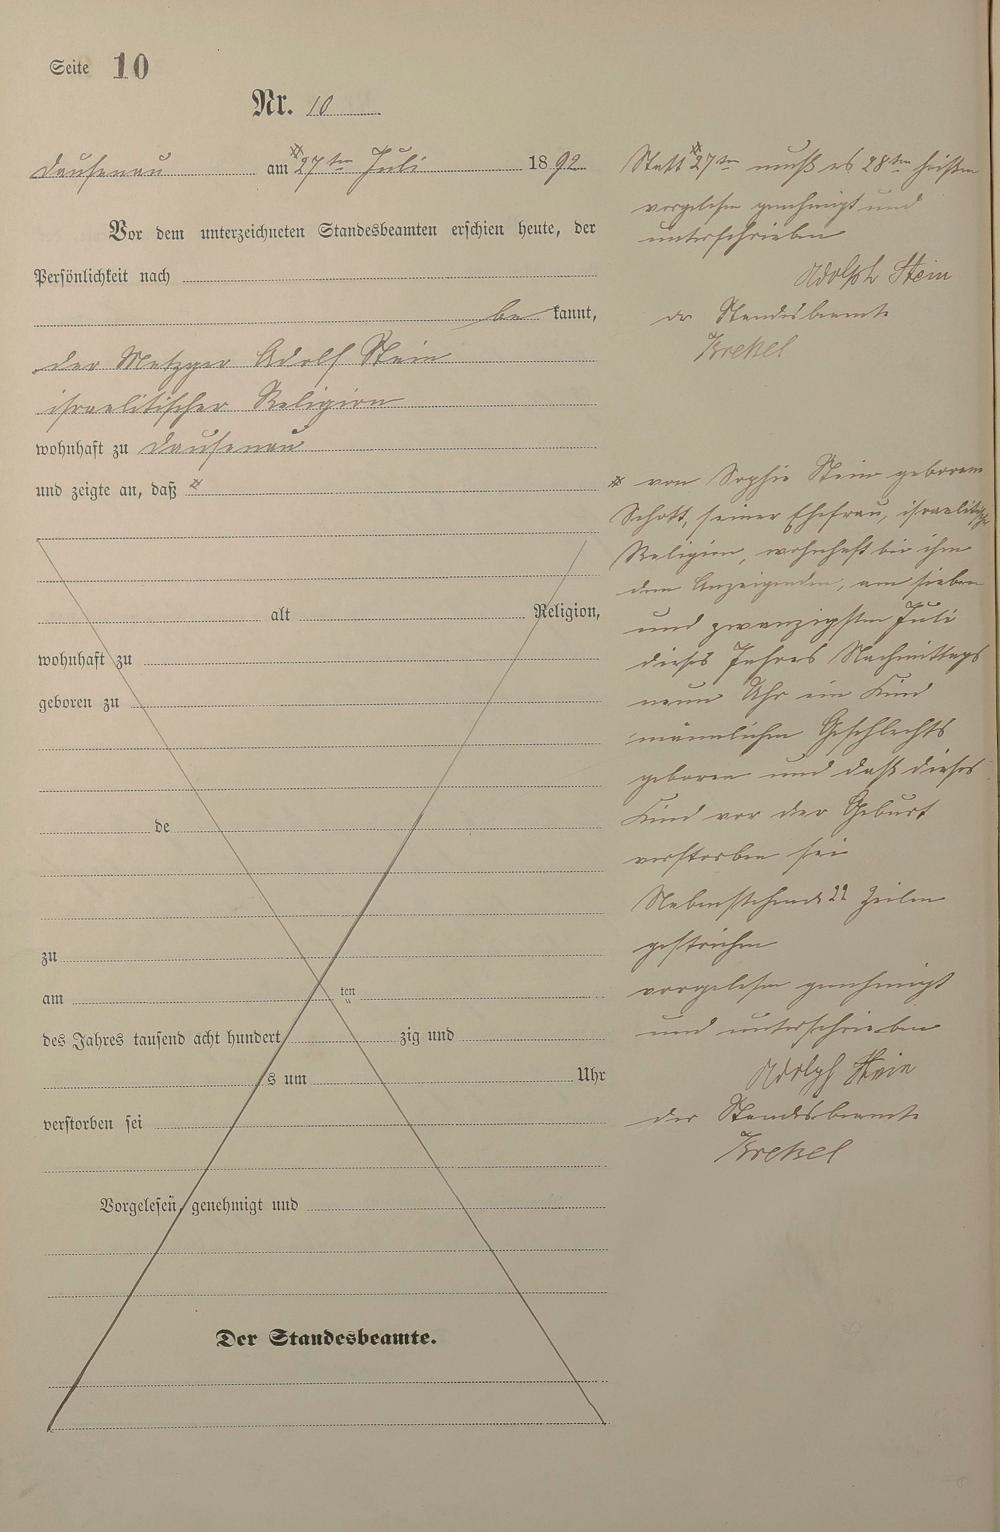 Seite 10
Nr. 10
Dausenau am # 27ten Juli 1892
Vor dem unterzeichneten Standesbeamten erschien heute, der
Persönlichkeit nach
be kannt,
der Metzger Adolf Stein
israelitischer Religion
wohnhaft zu Dausenau
und zeigte an, daß #
alt Religion,
wohnhaft zu
geboren zu
de
zu
am ten
des Jahres tausend acht hundert zig und
s um Uhr
verstorben sei
Vorgelesen, genehmigt und
Der Standesbeamte.
Statt # 27ten muß es 28ten heißen
vorgelesen genehmigt und
unterschrieben
Adolph Stein
der Standesbeamte
Krekel
# von Sophie Stein geborenen
Schott, seiner Ehefrau, israelitischer
Religion, wohnhaft bei ihm
dem Anzeigenden, am sieben
und zwanzigsten Juli
dieses Jahres Nachmittags
neun Uhr ein Kind
männlichen Geschlechts
geboren und daß dieses
Kind vor der Geburt
verstorben sei
Nebenstehende 22 Zeilen
gestrichen
vorgelesen genehmigt
und unterschrieben
Adolph Stein
der Standesbeamte
Krekel